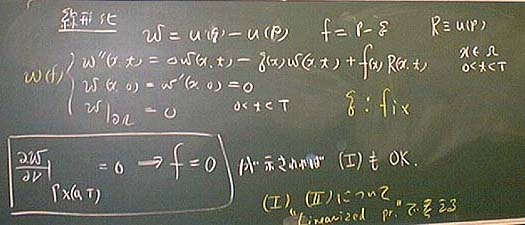 線形化 w = u(q) - u(p) f = p - q R ≡ u(p)
w(f) { w''(x,t) = Δw(x,t) - q(x)w(x,t) + f(x)R(x,t) x∈Ω 0<t<T
w(x,0) = w'(x,0) = 0
w|∂Ω = 0 0<t<T q : fix
∂w/∂ν |Γ×(0,T) = 0 → f = 0 が示されれば (I) も OK.
(I), (II) について
"Linearized pr." で考える